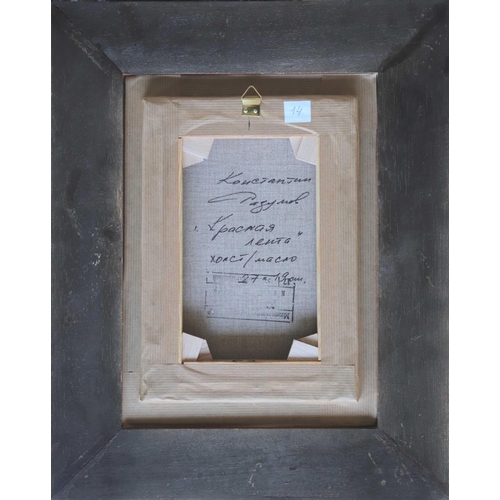 14
Константин
Разумов
"Красная
лента"
холст/масло
27 х 19 cm.